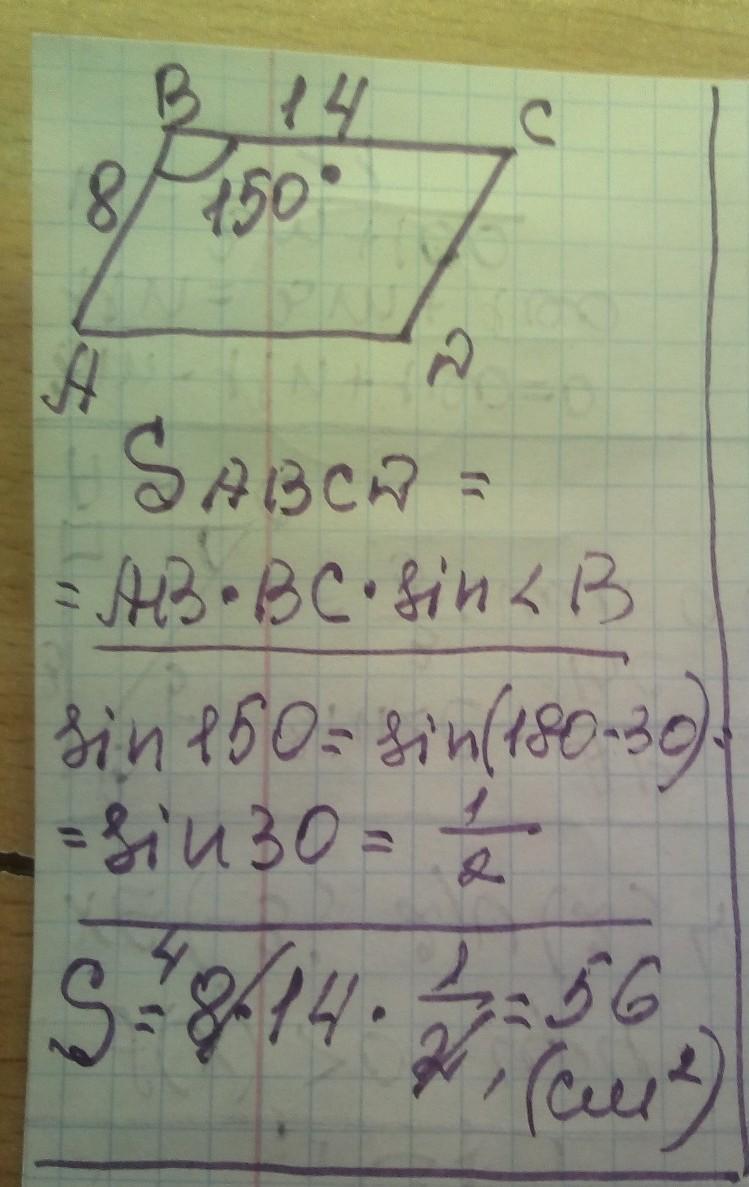 B 14 C
8 150°
A D
S ABCD =
= AB · BC · sin < B
sin 150 = sin(180-30) =
= sin 30 = 1/2
S = 8 · 14 · 1/2 = 56
4
(см²)